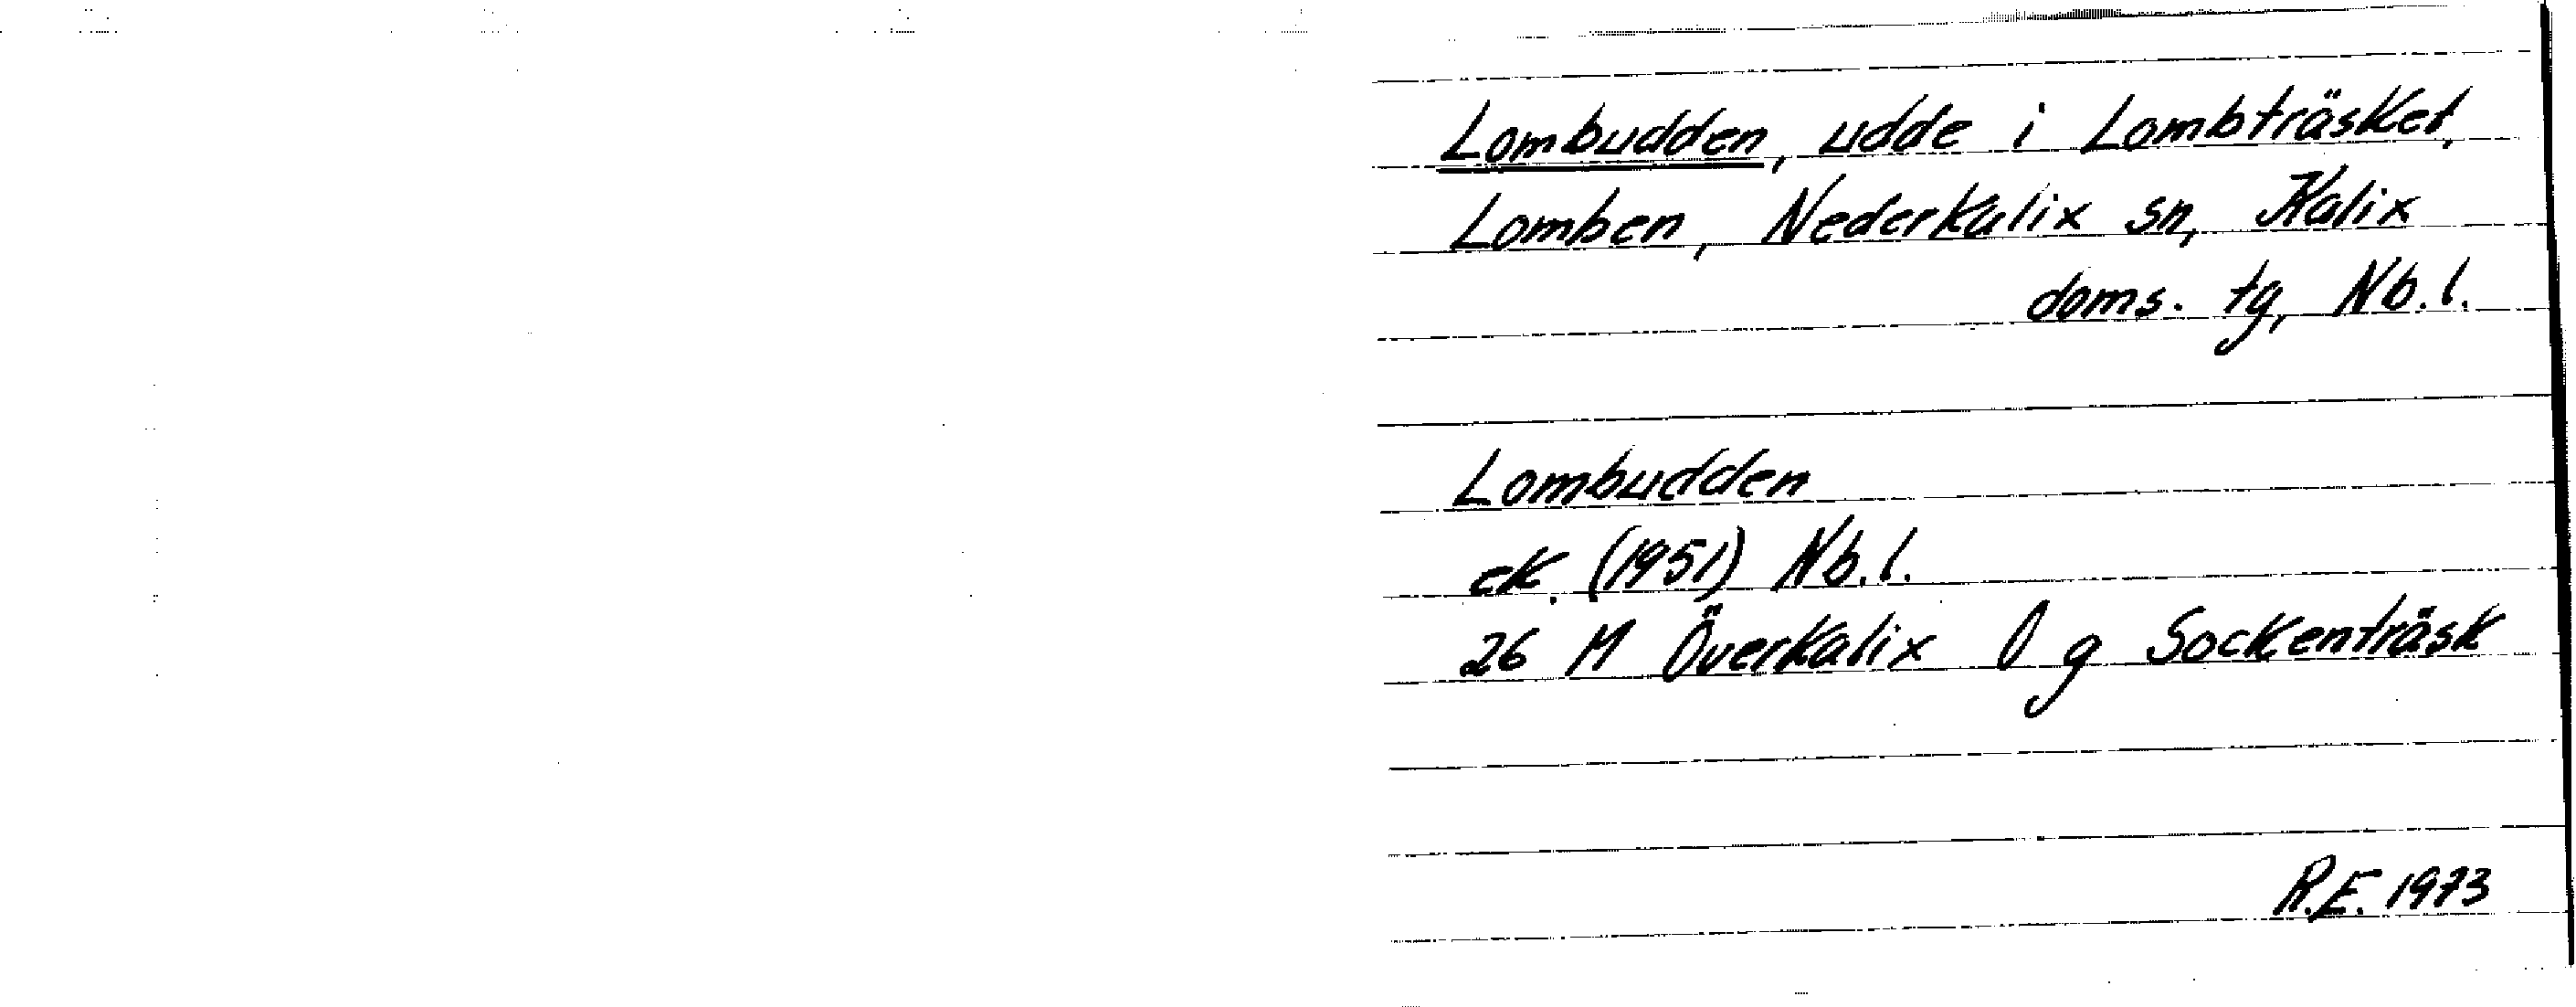 Lombudden, udde i Lombträsket,
Lomben, Nederkalix sn, Kalix
doms. tg, Nb.l.
Lombudden
ek. (1951) Nb.l.
26 M Överkalix 0 g Sockenträsk
R.E. 1973